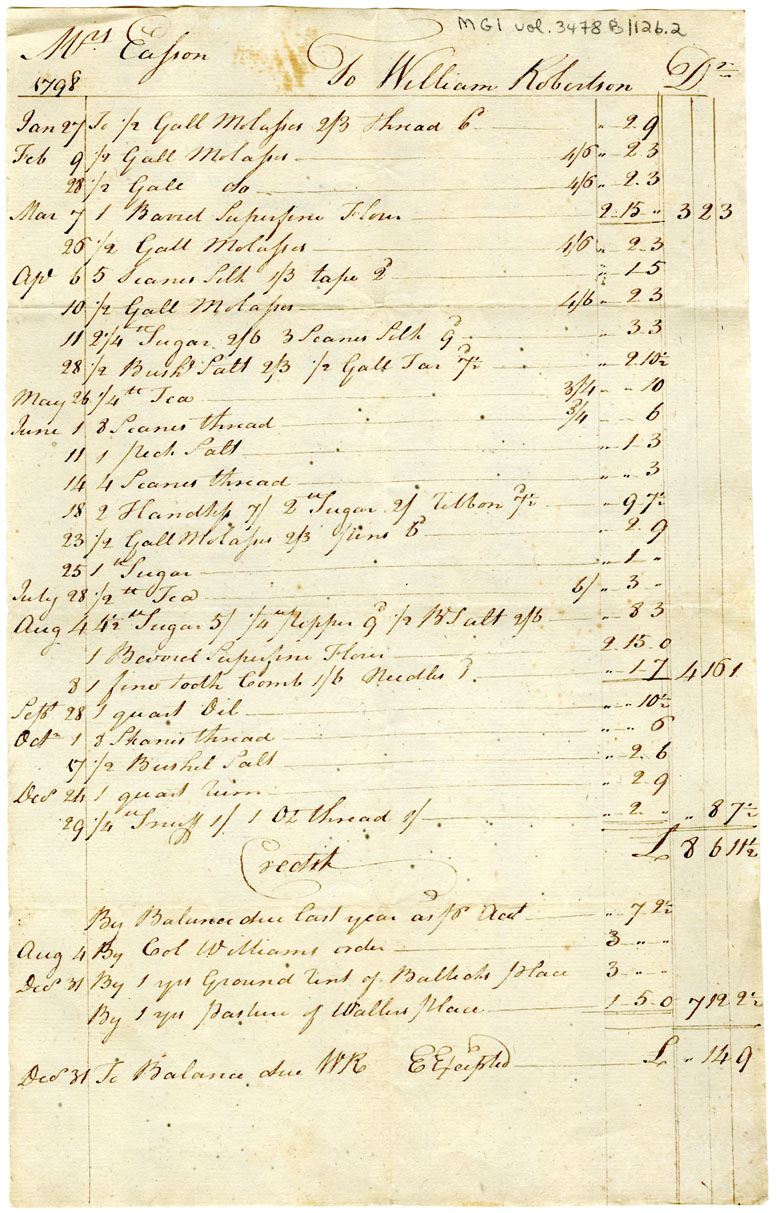 MG1 vol. 3478 B/126.2
Mrs Easson
1798 To William Robertson Dr
Jan 27 To 1/2 Gall Molasses 2/3 Thread 6d " 2 9
Feb 9 1/2 Gall Molasses 4/6 " 2 3
28 1/2 Gall do 4/6 " 2 3
Mar 7 1 Barrel Superfine Flour 2 15 " 3 2 3
26 1/2 Gall Molasses 4/6 " 2 3
Apr 6 5 Scanes Silk 1/3 tape 2d " 1 5
10 1/2 Gall Molasses 4/6 " 2 3
11 2 1/4 lb Sugar 2/6 3 Scanes Silk 9d " 3 3
28 1/2 Bushl Salt 2/3 1/2 Gall Tar 7 1/2d " 2 10 1/2
May 26 1/4 lb Tea 3/4 " " 10
June 1 8 Scanes thread 3/4 " " 6
11 1 Peck Salt " 1 3
14 4 Scanes thread " " 3
18 2 Handkfs 7/ 2 lb Sugar 2/ Ribbon 7 1/2d " 9 7 1/2
23 1/2 Gall Molasses 2/3 Pins 6d " 2 9
25 1 lb Sugar " 1 "
July 28 1/2 lb Tea 6/ " 3 "
Aug 4 4 1/2 lb Sugar 5/ 1/4 lb Pepper 9d 1/2 Bl Salt 2/6 " 8 3
1 Barrel Superfine Flour 2 15 0
8 1 fine tooth Comb 1/6 Needles 1d " 1 7 4 16 1
Sept 28 1 quart Oil " " 10 1/2
Octr 1 8 Skanes thread " " 6
17 1/2 Bushel Salt " 2 6
Decr 24 1 quart Rum " 2 9
29 1/4 lb Snuff 1/ 1 Oz thread 1/ " 2 " " 8 7 1/2
£ 8 6 11 1/2
Credit
By Balance due last year as pr Acct " 7 2 1/2
Aug 4 By Col Williams order 3 " "
Decr 31 By 1 yrs Ground Rent of place 3 " "
By 1 yrs Pasture of Wallers place 1 5 0 7 12 2 1/2
Decr 31 To Balance due WR E Excepted £ " 14 9